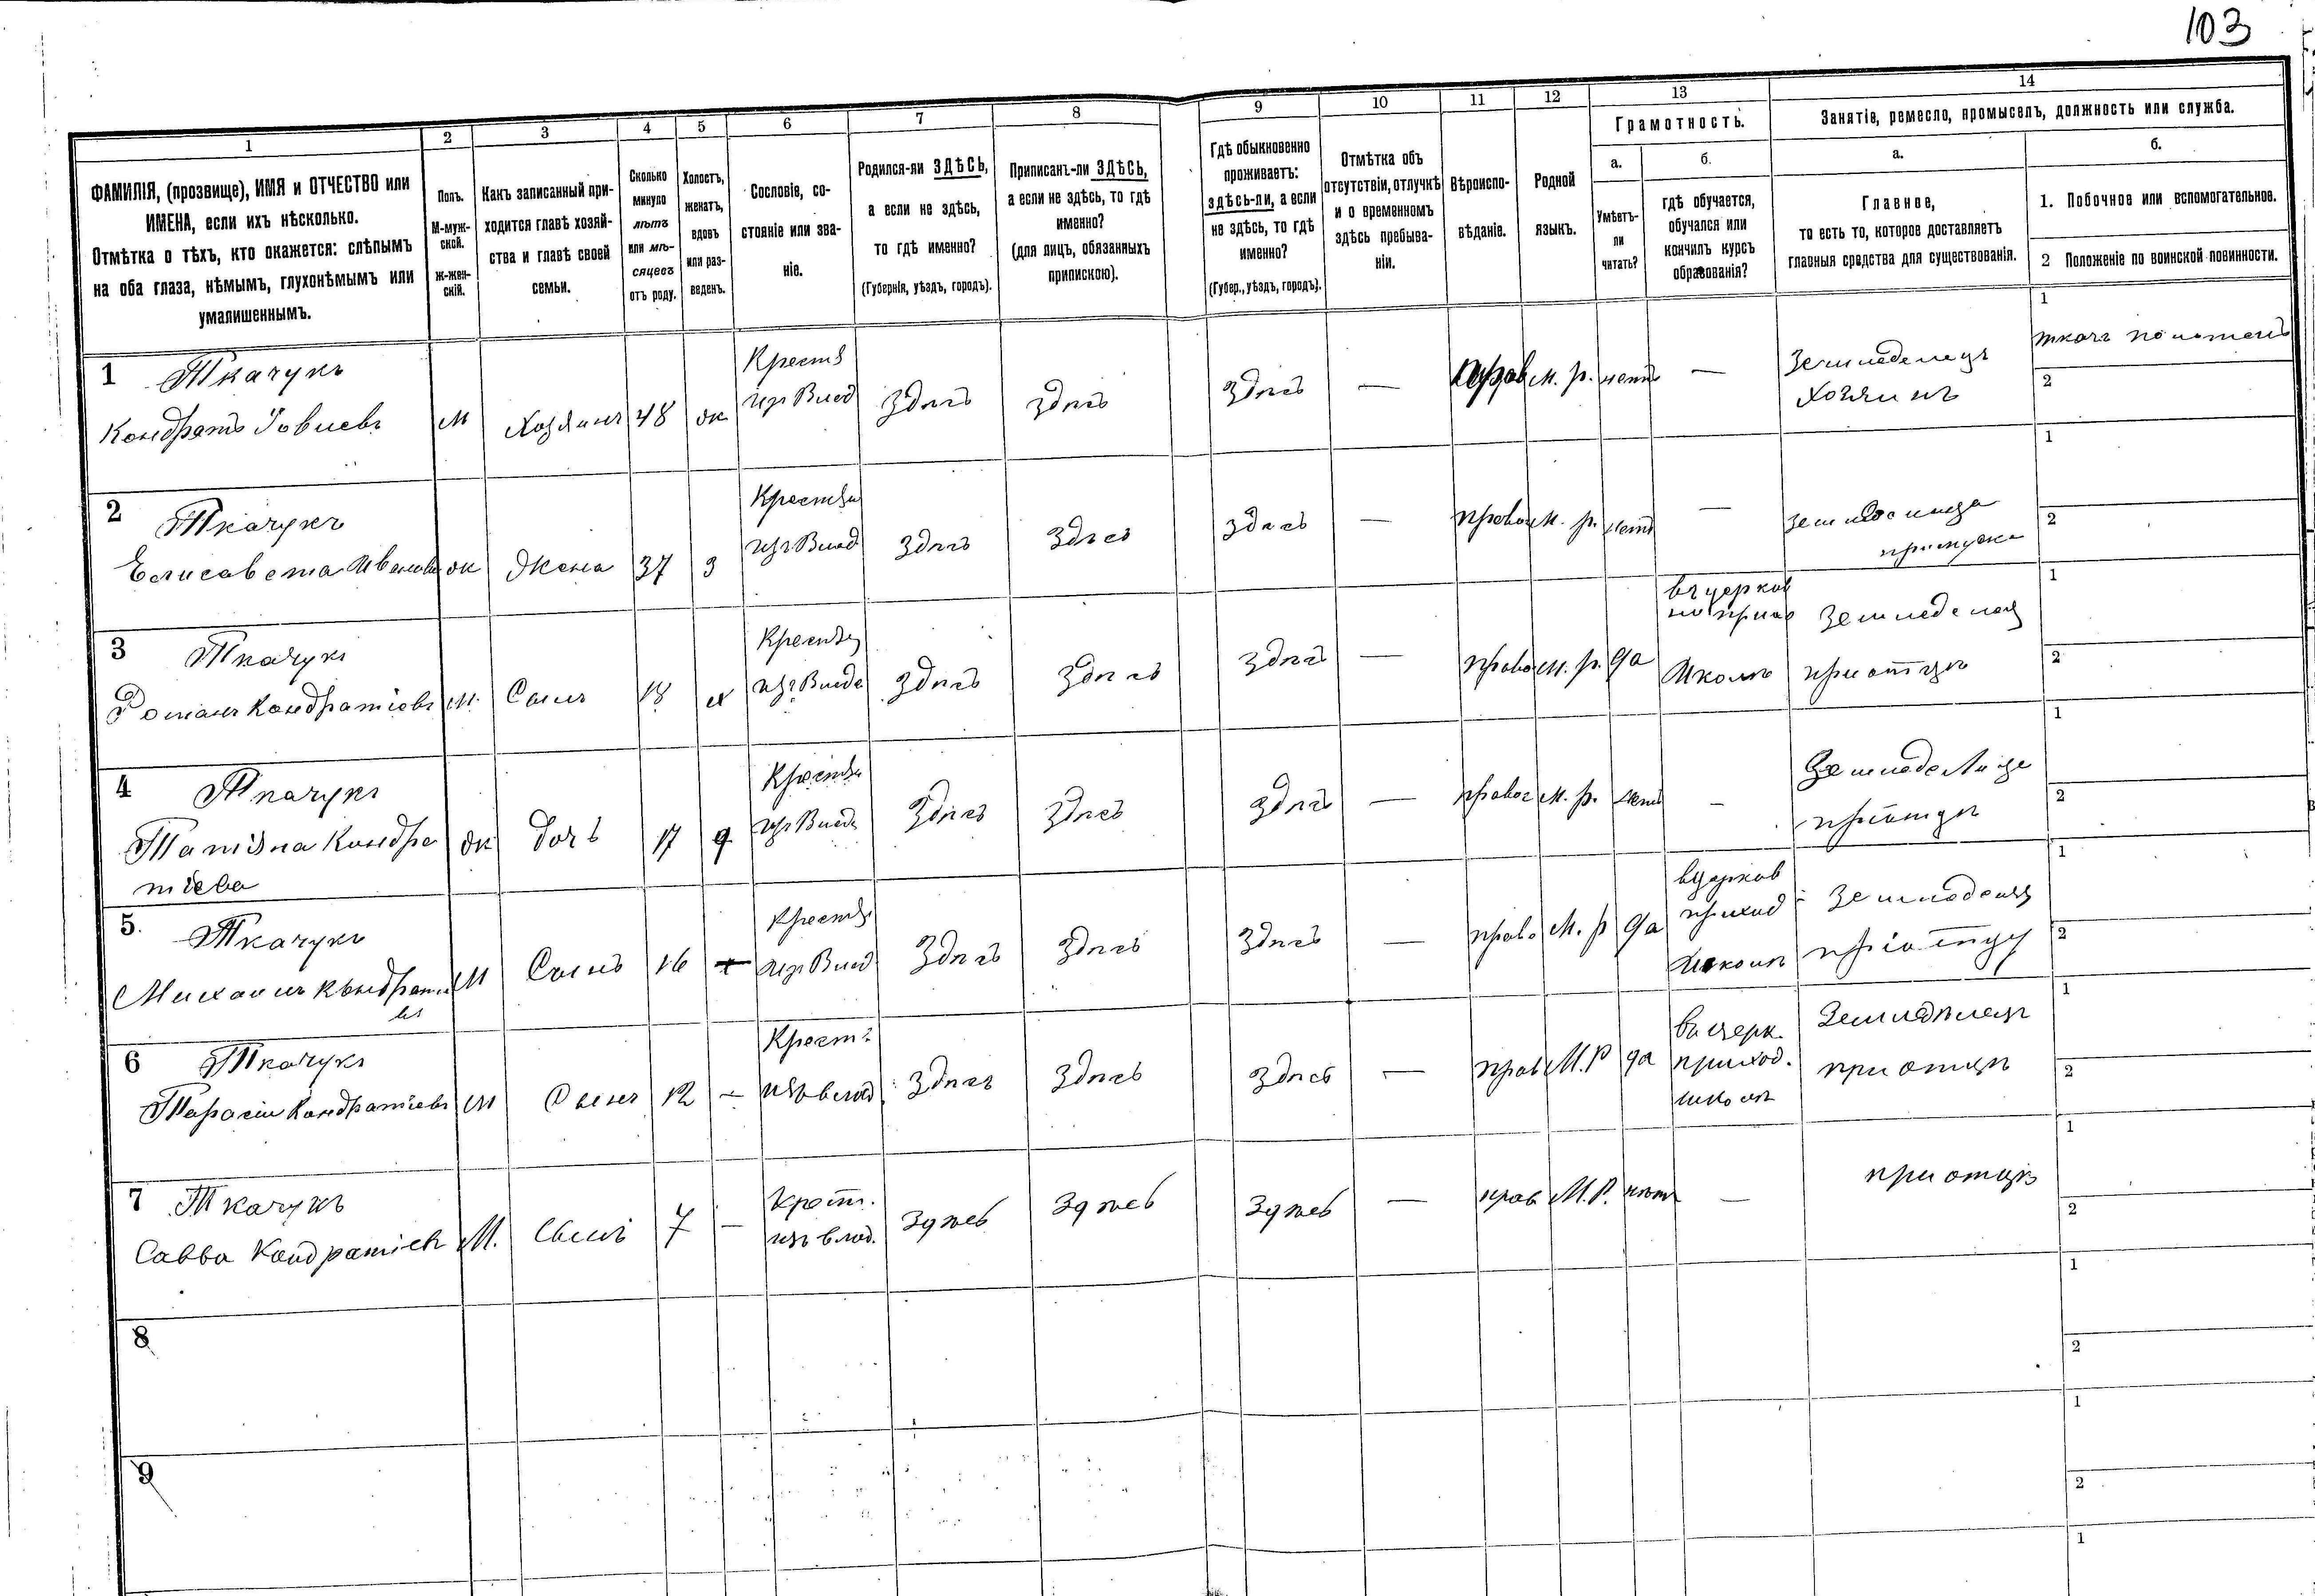 103
1 2 3 4 5 6 7 8 9 10 11 12 13 14
ФАМИЛІЯ, (прозвище), ИМЯ и ОТЧЕСТВО или
ИМЕНА, если ихъ нѣсколько.
Отмѣтка о тѣхъ, кто окажется: слѣпымъ
на оба глаза, нѣмымъ, глухонѣмымъ или
умалишеннымъ.
Полъ.
М-муж-
ской.
ж-жен-
скій.
Какъ записанный при-
ходится главѣ хозяй-
ства и главѣ своей
семьи.
Сколько
минуло
лѣтъ
или мѣ-
сяцевъ
отъ роду.
Холостъ,
женатъ,
вдовъ
или раз-
веденъ.
Сословіе, со-
стояніе или зва-
ніе.
Родился-ли ЗДѢСЬ,
а если не здѣсь,
то гдѣ именно?
(Губернія, уѣздъ, городъ).
Приписанъ-ли ЗДѢСЬ,
а если не здѣсь, то гдѣ
именно?
(для лицъ, обязанныхъ
припискою).
Гдѣ обыкновенно
проживаетъ:
здѣсь-ли, а если
не здѣсь, то гдѣ
именно?
(Губер., уѣздъ, городъ).
Отмѣтка объ
отсутствіи, отлучкѣ
и о временномъ
здѣсь пребыва-
ніи.
Вѣроиспо-
вѣданіе.
Родной
языкъ.
Грамотность.
а.
Умѣетъ-
ли
читать?
б.
гдѣ обучается,
обучался или
кончилъ курсъ
образованія?
Занятіе, ремесло, промыселъ, должность или служба.
а.
Главное,
то есть то, которое доставляетъ
главныя средства для существованія.
б.
1. Побочное или вспомогательное.
2 Положеніе по воинской повинности.
1 Ткачукъ
Кондратъ Іовиевъ М Хозяинъ 48 ж Крест изъ Влад Здѣсь здѣсь здѣсь — м. р. нетъ — Земледелецъ Хозяинъ
1 ткачъ
2
2 Ткачукъ
Елисавета Иванова ж Жена 37 з изъ Влад здѣсь здѣсь здѣсь — правос м. р. нетъ —
1
2
3 Ткачукъ
Романъ Кондратіевъ м. Сынъ 18 х изъ Владе здѣсь здѣсь здѣсь — право м. р. да въ церков Школѣ Земледелец при отцѣ
1
2
4 Ткачукъ
Татіяна Кондра
тіева ж Дочь 17 д изъ Владе здѣсь здѣсь здѣсь — правос м. р. нетъ — при отцѣ
1
2
5. Ткачукъ
Михаилъ Кондратіевъ м Сынъ 16 — изъ Влад Здѣсь здѣсь здѣсь — право м. р да вцерков приход Школѣ Земледелец при отцу
1
2
6 Ткачукъ
Тарасій Кондратіевъ м Сынъ 12 — Крест. изъ влад. здѣсь здѣсь здѣсь — прав М.Р да въ церк. приход. школѣ Земледѣлецъ при отцѣ
1
2
7 Ткачукъ
Савва Кондратіевъ М. Сынъ 7 — Крест. изъ влад. Здѣсь здѣсь здѣсь — прав М.Р. нѣтъ — при отцѣ
1
2
8
1
2
9
1
2
1